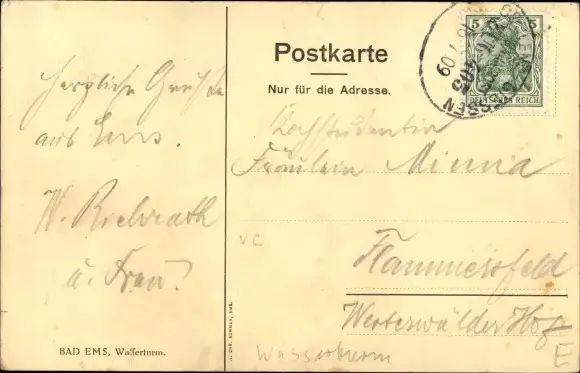 Herzliche Grüße
aus Ems.
W. Rielvrath
u. Frau.
BAD EMS, Wasserturm.
Postkarte
Nur für die Adresse.
5 5
DEUTSCHES REICH
09
ESSEN
Kochstudentin
Fräulein Minna
Flammersfeld
Westerwälder Hof
VC
Wasserturm
E